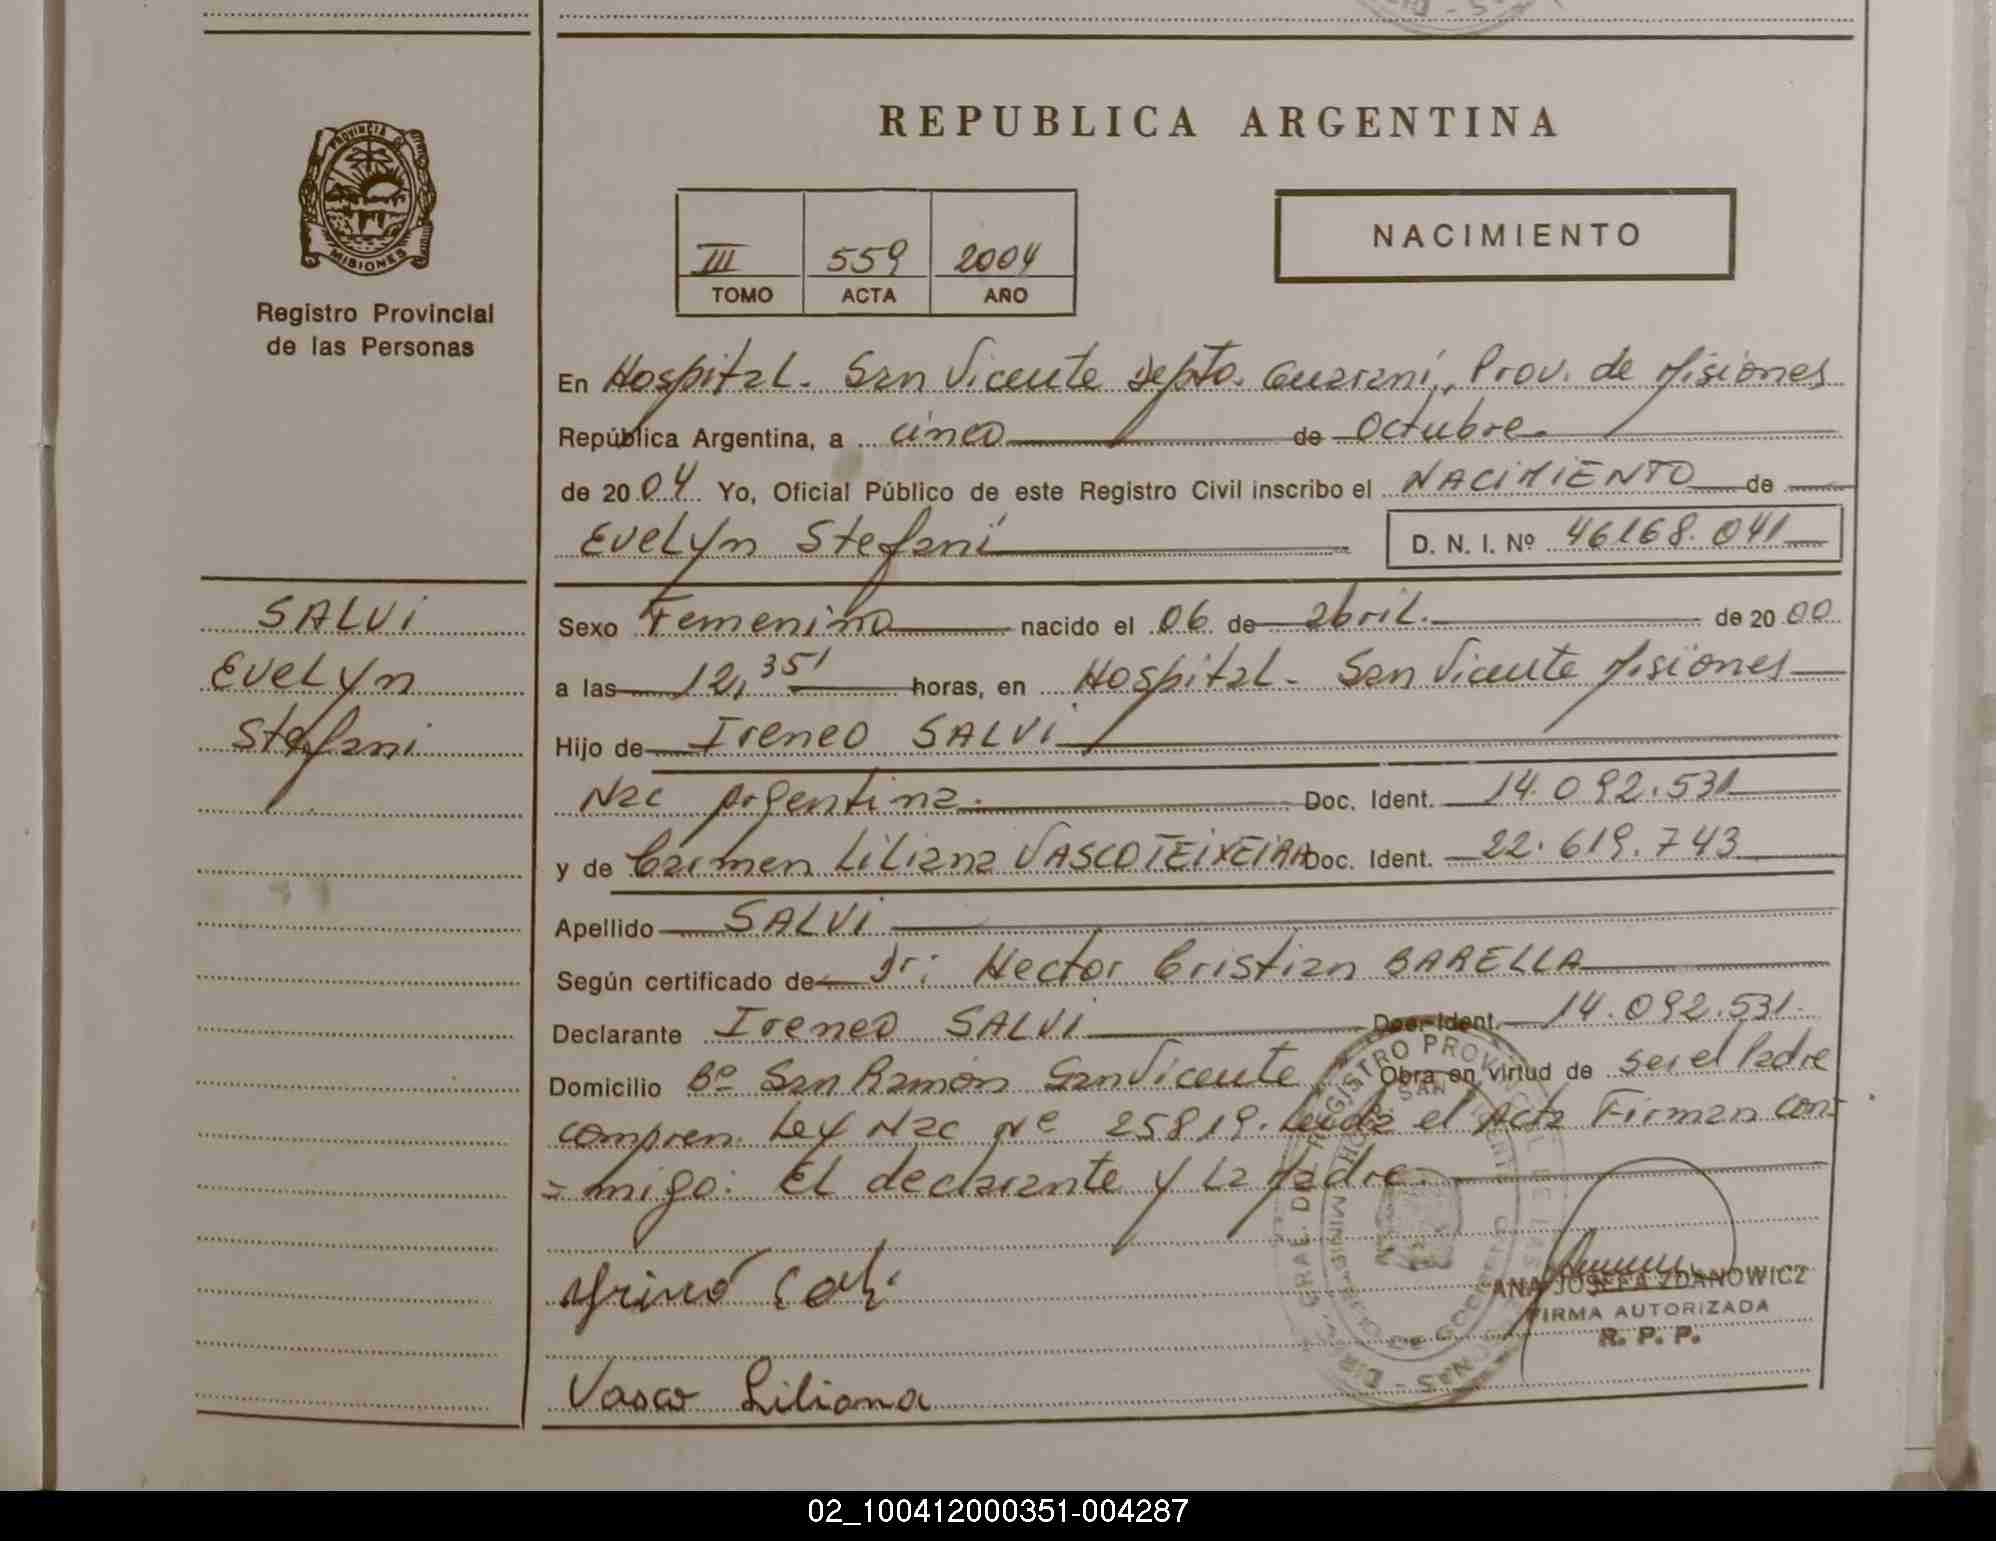 REPUBLICA ARGENTINA
PROVINCIA
MISIONES
Registro Provincial
de las Personas
III 559 2004
TOMO ACTA AÑO
NACIMIENTO
En Hospital. San Vicente Depto. Guaraní, Prov. de Misiones
República Argentina, a cinco de Octubre.
de 2004 Yo, Oficial Público de este Registro Civil inscribo el NACIMIENTO de
Evelyn Stefani D. N. I. Nº 46168.041
SALVI
Evelyn
Stefani
Sexo Femenino nacido el 06 de abril. de 2000
a las 12,35' horas, en Hospital. San Vicente Misiones
Hijo de Ireneo SALVI
Nac Argentina. Doc. Ident. 14.092.531
y de Carmen Liliana VASCOTEIXEIRA Doc. Ident. 22.619.743
Apellido SALVI
Según certificado de Dr: Hector Cristian BARELLA
Declarante Ireneo SALVI Doc. Ident. 14.092.531.
Domicilio Bº San Ramón San Vicente Obra en virtud de ser el Padre
compren. Ley Nac Nº 25819. Leida el Acta Firman con-
=migo: El declarante y la Madre.
Vasco Liliana
ANA JOSEFA ZDANOWICZ
FIRMA AUTORIZADA
R. P. P.
02_100412000351-004287